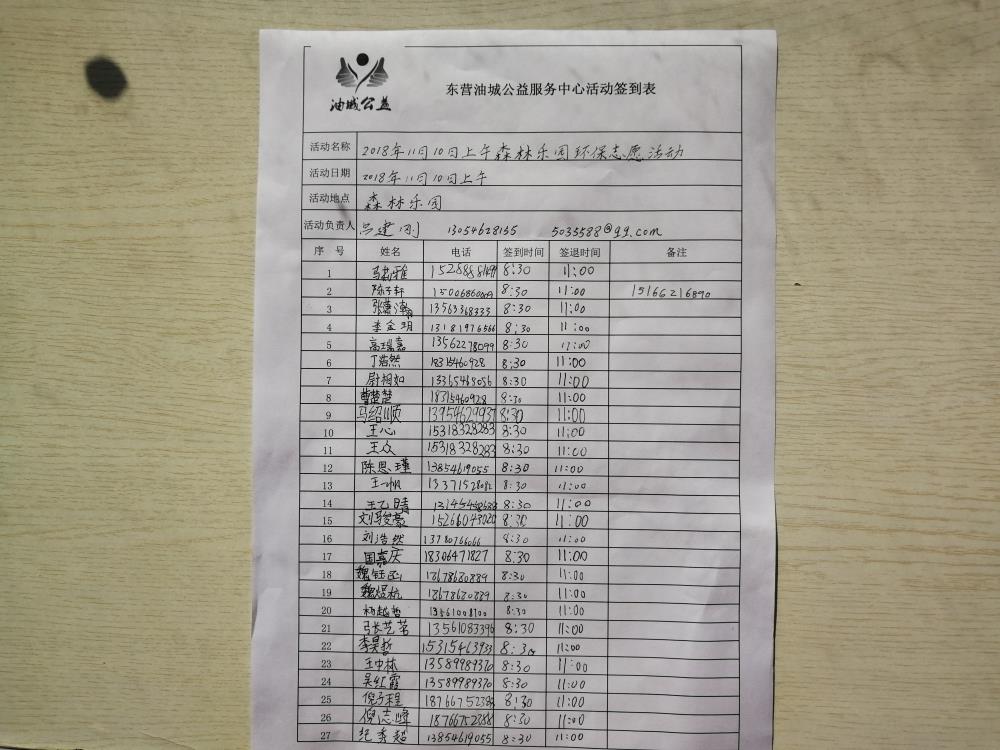 油城公益
东营油城公益服务中心活动签到表
活动名称 2018年11月10日上午森林乐园环保志愿活动
活动日期 2018年11月10日上午
活动地点 森林乐园
活动负责人 吕建刚 13054628135 5033588@qq.com
序号 姓名 电话 签到时间 签退时间 备注
1 8:30 11:00
2 陈子轩 8:30 11:00 15166216890
3 13563368333 8:30 11:00
4 李金玥 13181976566 8:30 11:00
5 高瑞嘉 13562278099 8:30 11:00
6 丁浩然 18315460928 8:30 11:00
7 尉相如 13365468056 8:30 11:00
8 曹楚楚 18315460928 8:30 11:00
9 马绍顺 13954629937 8:30 11:00
10 王心 15318328283 8:30 11:00
11 王众 15318328283 8:30 11:00
12 陈思瑾 13854619055 8:30 11:00
13 王一帆 8:30 11:00
14 王乙晴 8:30 11:00
15 刘骏豪 15266043020 8:30 11:00
16 刘浩然 13780766066 8:30 11:00
17 国嘉庆 18306471827 8:30 11:00
18 魏钰函 18678620889 8:30 11:00
19 魏煜杭 18678620889 8:30 11:00
20 8:30 11:00
21 张艺茗 13561083396 8:30 11:00
22 李昊哲 15315463933 8:30 11:00
23 王中林 13589989370 8:30 11:00
24 吴红霞 13589989370 8:30 11:00
25 倪子程 18766752388 8:30 11:00
26 倪志峰 18766752388 8:30 11:00
27 纪秀超 13854619055 8:30 11:00